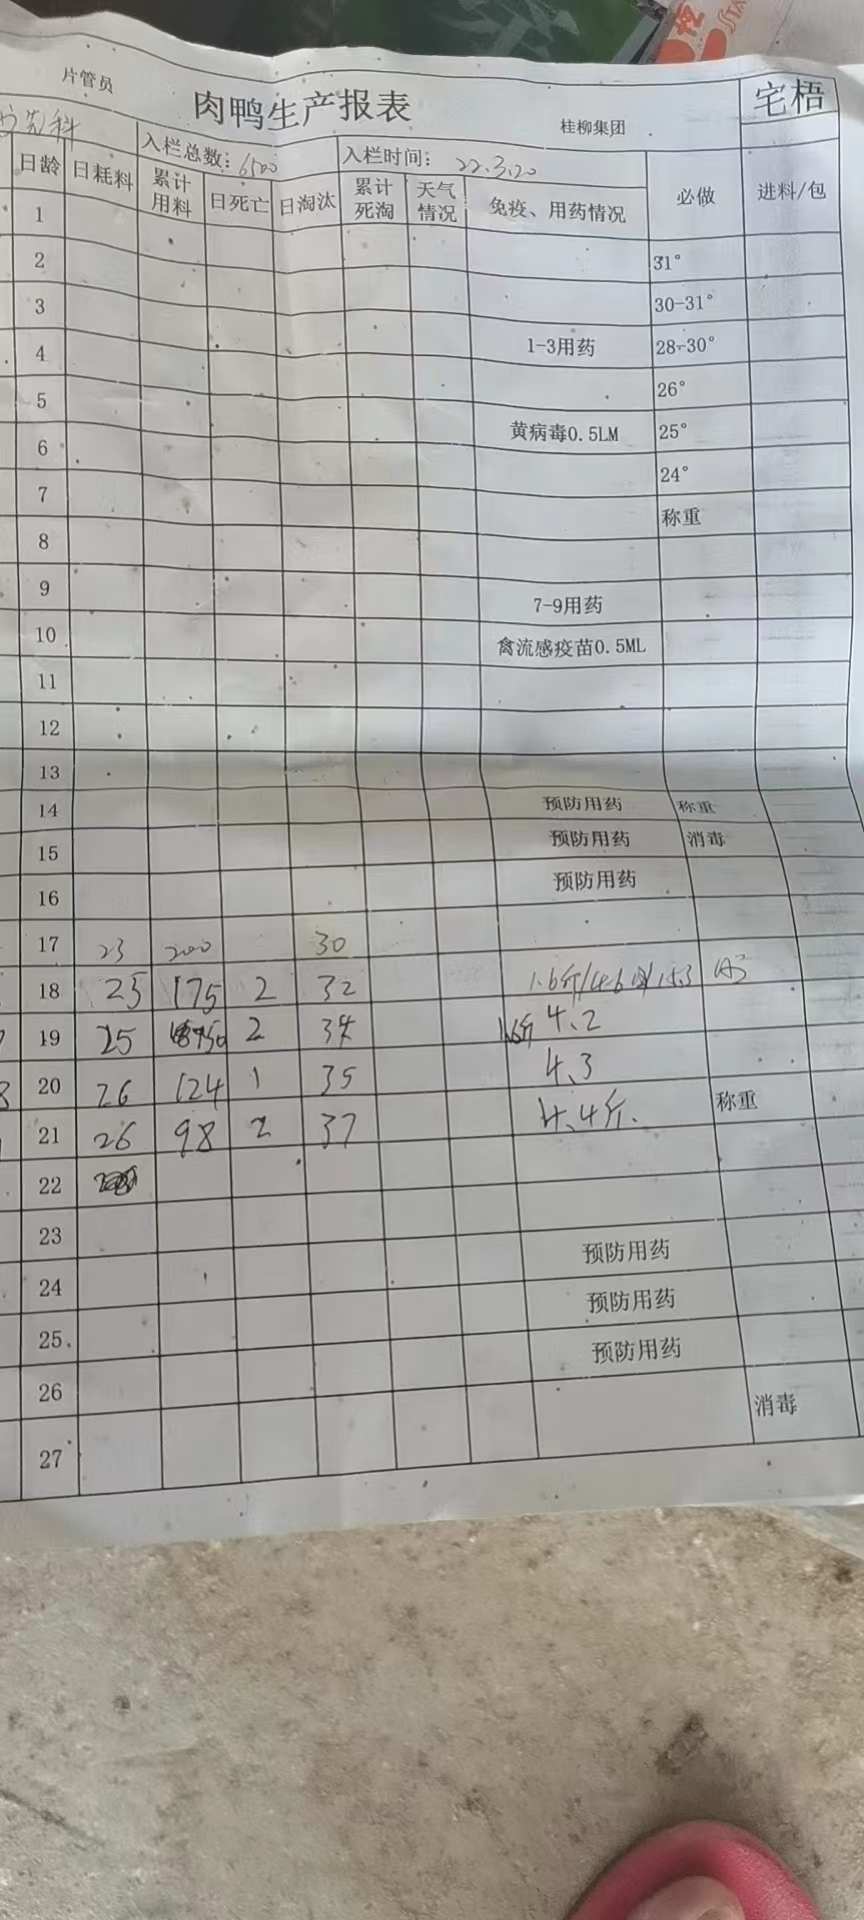 片管员
肉鸭生产报表
桂柳集团
宅梧
入栏总数: 6500
入栏时间: 22.3.20
日龄 日耗料 累计用料 日死亡 日淘汰 累计死淘 天气情况 免疫、用药情况 必做 进料/包
1
2 31°
3 30-31°
4 1-3用药 28-30°
5 26°
6 黄病毒0.5LM 25°
7 24°
8 称重
9
10 7-9用药
11 禽流感疫苗0.5ML
12
13
14 预防用药 称重
15 预防用药 消毒
16 预防用药
17 23 200 30
18 25 175 2 32 1.6斤/4.6
19 25 150 2 34 4.2
20 26 124 1 35 4.3
21 26 98 2 37 4.4斤. 称重
22
23
24 预防用药
25 预防用药
26 预防用药
27 消毒